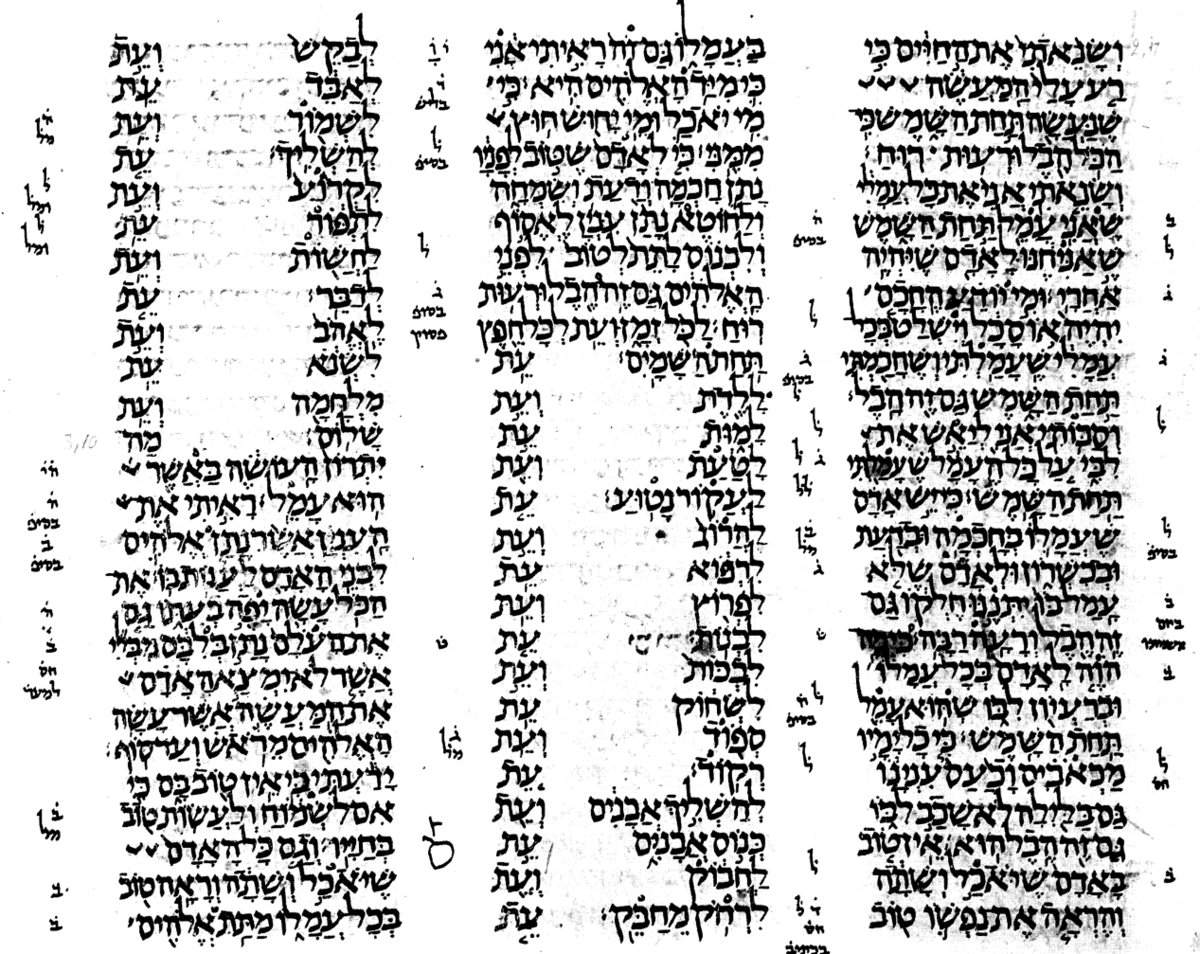 ושנאתי את החיים כי
רע עלי המעשה
שנעשה תחת השמש כי
הכל הבל ורעות רוח׃
ושנאתי אני את כל עמלי
שאני עמל תחת השמש
שאניחנו לאדם שיהיה
אחרי׃ ומי יודע החכם
יהיה או סכל וישלט בכל
עמלי שעמלתי ושחכמתי
תחת השמש גם זה הבל׃
וסבותי אני ליאש את
לבי על כל העמל שעמלתי
תחת השמש׃ כי יש אדם
שעמלו בחכמה ובדעת
ובכשרון ולאדם שלא
עמל בו יתננו חלקו גם
זה הבל ורעה רבה׃ כי מה
הוה לאדם בכל עמלו
וברעיון לבו שהוא עמל
תחת השמש׃ כי כל ימיו
מכאבים וכעס ענינו
גם בלילה לא שכב לבו
גם זה הבל הוא׃ אין טוב
באדם שיאכל ושתה
והראה את נפשו טוב
בעמלו גם זה ראיתי אני
כי מיד האלהים היא׃ כי
מי יאכל ומי יחוש חוץ
ממני׃ כי לאדם שטוב לפניו
נתן חכמה ודעת ושמחה
ולחוטא נתן ענין לאסוף
ולכנוס לתת לטוב לפני
האלהים גם זה הבל ורעות
רוח׃ לכל זמן ועת לכל חפץ
תחת השמים׃ עת
ללדת ועת
למות עת
לטעת ועת
לעקור נטוע׃ עת
להרוג ועת
לרפוא עת
לפרוץ ועת
לבנות׃ עת
לבכות ועת
לשחוק עת
ספוד ועת
רקוד׃ עת
להשליך אבנים ועת
כנוס אבנים עת
לחבוק ועת
לרחק מחבק׃ עת
לבקש ועת
לאבד עת
לשמור ועת
להשליך׃ עת
לקרוע ועת
לתפור עת
לחשות ועת
לדבר׃ עת
לאהב ועת
לשנא עת
מלחמה ועת
שלום׃ מה
יתרון העושה באשר
הוא עמל׃ ראיתי את
הענין אשר נתן אלהים
לבני האדם לענות בו׃ את
הכל עשה יפה בעתו גם
את העלם נתן בלבם מבלי
אשר לא ימצא האדם
את המעשה אשר עשה
האלהים מראש ועד סוף׃
ידעתי כי אין טוב בם כי
אם לשמוח ולעשות טוב
בחייו׃ וגם כל האדם
שיאכל ושתה וראה טוב
בכל עמלו מתת אלהים׃